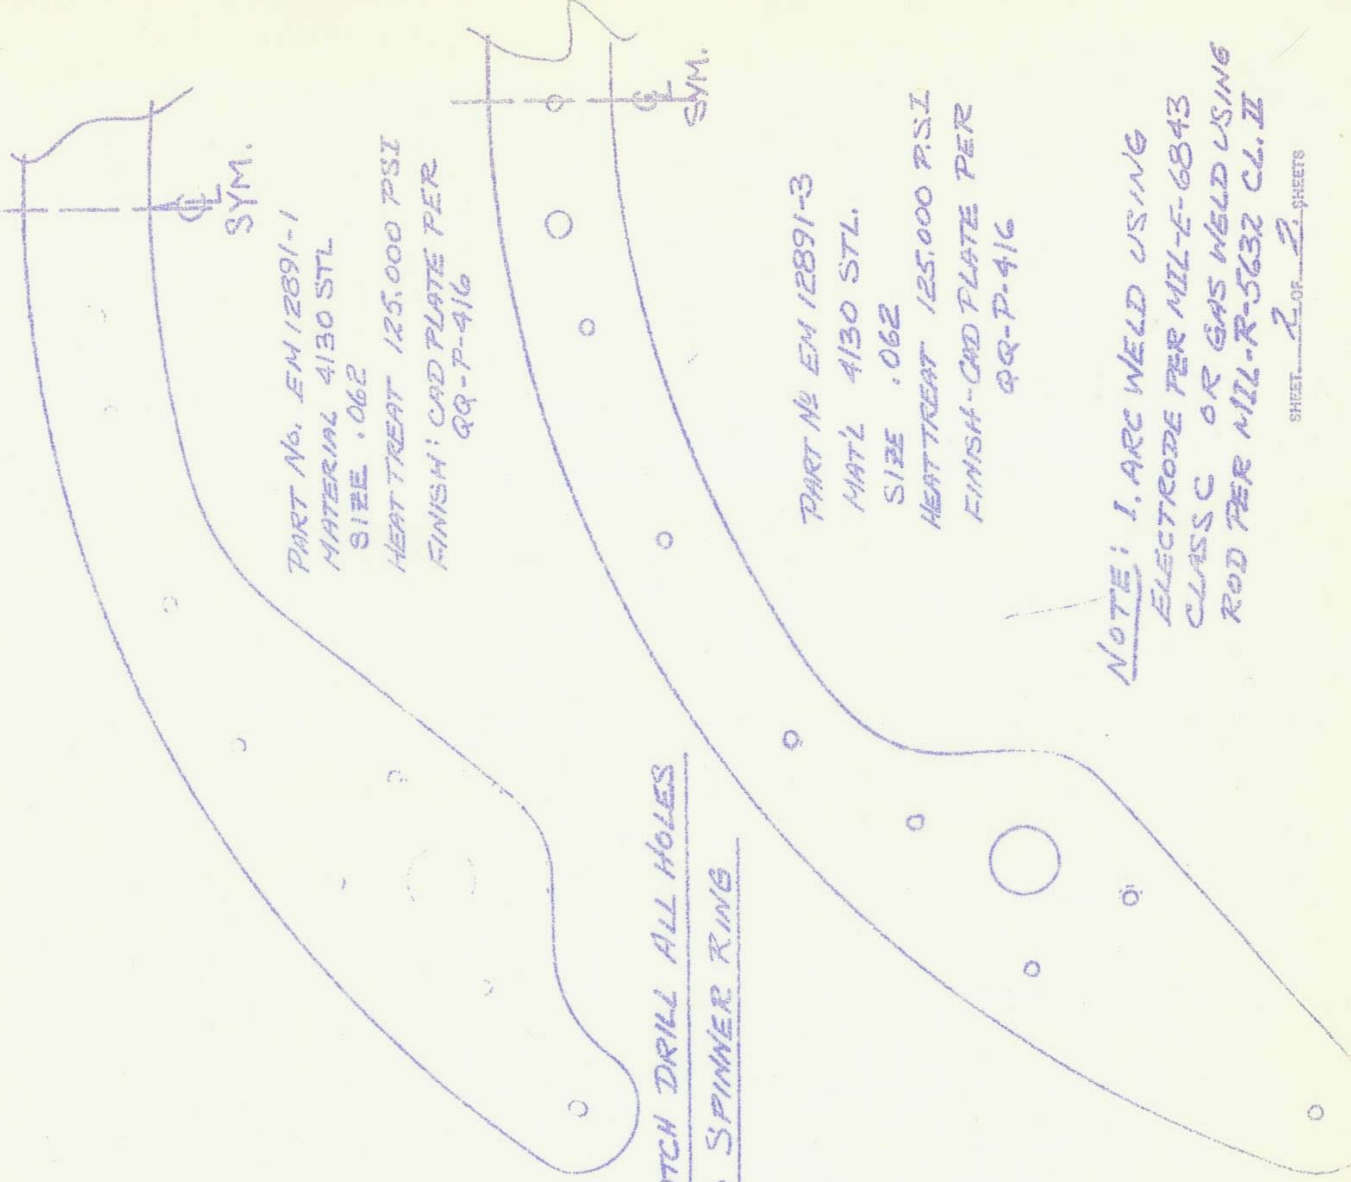 ℄
SYM.
PART No. EM 12891-1
MATERIAL 4130 STL
SIZE .062
HEAT TREAT 125.000 PSI
FINISH: CAD PLATE PER
QQ-P-416
℄
SYM.
PART No EM 12891-3
MAT'L 4130 STL.
SIZE .062
HEAT TREAT 125.000 P.S.I
FINISH-CAD PLATE PER
QQ-P-416
DRILL ALL HOLES
SPINNER RING
NOTE: 1. ARC WELD USING
ELECTRODE PER MIL-E-6843
CLASS C OR GAS WELD USING
ROD PER MIL-R-5632 CL. II
SHEET 2 OF 2 SHEETS